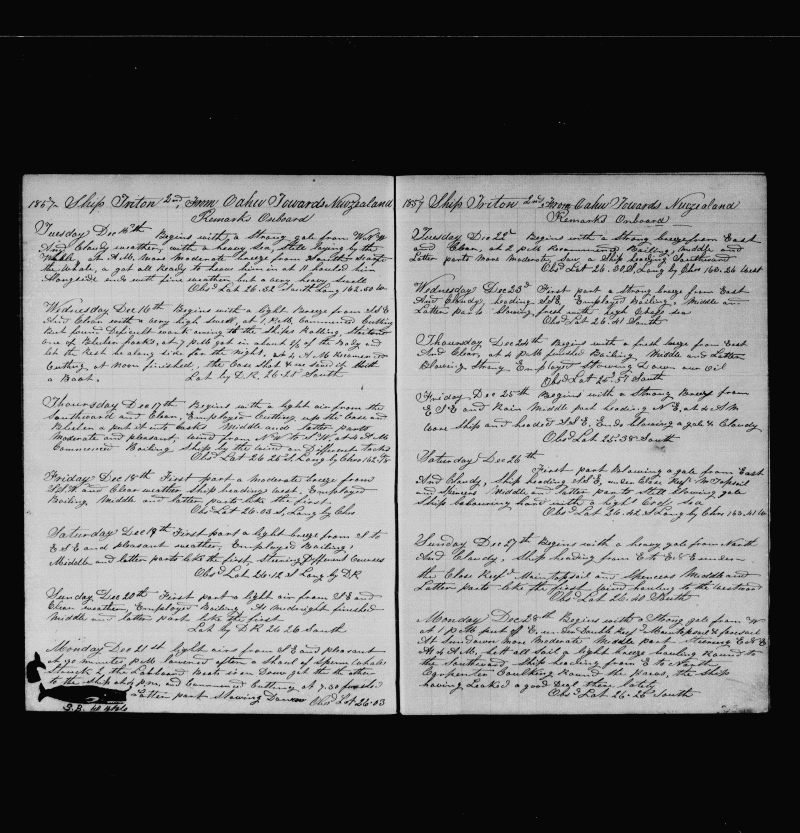 1857 Ship Triton 2nd, From Oahu Towards Newzealand
Remarks Onboard
Tuesday Dec 15th Begins with a Strong gale from W.N.W
And Cloudy weather, with a heavy sea, Still laying by the
Whale, at A.M. More Moderate breeze from South
the Whale, & got all Ready to heave him in at 11 hauled him
Alongside ends with fine weather but a very heavy swell
Obsd Lat 26.32 South Long 162.50 W
Wednesday Dec 16th Begins with a light Breeze from S S E
And Clear with a very high Swell, at 1 P.M. Commenced Cutting
But found Difficult work owing to the Ships Rolling,
one of Blubber, at 7 P.M got in about 1/2 of the Body and
let the Rest lie along side for the Night, at 4 A M Recommenced
Cutting, at Noon finished, the Case Shat
a Boat. Lat by D.R. 26.25 South
Thoursday Dec 17th Begins with a light air from the
Southward and Clear, Employed Cutting up the Case and
Blubber & put it into Casks Middle and latter parts
Moderate and pleasant, wind from N.W to S.W, at 4 A M
Commenced Boiling Ship by the wind on Different tacks
Obsd Lat 26.25 S. Long by Chro 162.
Friday Dec 18th First part a moderate breeze from
S.S.W. and Clear weather, Ship heading West, Employed
Boiling Middle and latter parts like the first
Obsd Lat 26.03 S, Long by Chro
Saturday Dec 19th First part a light breeze from S to
E S E and pleasant weather, Employed Boiling,
Middle and latter parts like the first, Steering Different Courses
Obsd Lat 26.12 S Long by D.R
Sunday Dec 20th First part a light air from S E and
Clear weather, Employed Boiling, At Midnight finished
Middle and latter part like the first
Lat by D.R. 26.26 South
Monday Dec 21st light airs from S E and pleasant
At 30 minutes P.M. lowered after a Shoal of Sperm Whales
Struck & the Larboard Boats iron Drew got the the other
to the Ship at 4 P.M, and Commenced Cutting at 7.30 finished
Latter part Stowing Down Obsd Lat 26.03
S.B. 40 bbls
1857 Ship Triton 2nd, From Oahu Towards Newzealand
Remarks Onboard
Tuesday Dec 22d Begins with a Strong breeze from East
And Clear, at 2 P.M. Recommenced Boiling, Middle and
Latter parts More Moderate, Saw a Ship heading Southward
Obsd Lat 26.30 S. Long by Chro 163.26 West
Wednesday Dec 23d First part a Strong breeze from East
And Cloudy, heading S S E, Employed Boiling, Middle and
Latter parts blowing fresh with high Cross sea
Obsd Lat 26.41 South
Thoursday Dec 24th Begins with a fresh breeze from East
And Clear, at 4 P.M finished Boiling, Middle and Latter
Blowing Strong Employed Stowing Down our Oil
Obsd Lat 25.51 South
Friday Dec 25th Begins with a Strong Breeze from
E S E and Rain Middle part heading N E, at 4 A.M
wore Ship and headed S S E, Ends blowing a gale & Cloudy
Obsd Lat 25.38 South
Saturday Dec 26th
First part blowing a gale from East
And Cloudy, Ship heading S S E, under Close Reef M Topsail
and Spencers Middle and latter parts Still blowing gale
Ship behaveing hard with a high Cross Sea
Obsd Lat 26.42 S Long by Chro 163.41 W
Sunday Dec 27th Begins with a heavy gale from North
And Cloudy, Ship heading from E to E N E under
the Close Reefd Main topsail and Spencers Middle and
Latter parts like the first, wind hauling to the Westward
Obsd Lat 26.40 South
Monday Dec 28th Begins with a Strong gale from W
at 1 P.M put off E, under Double Reefd Maintopsail & foresail
At Sundown more Moderate Middle part Steering East
At 4 A.M, let all Sail a light breeze hauling Round to
the Southward, Ship heading from E to North
Carpenter Caulking Round the Hawse, the Ship
having Leaked a good Deal there lately
Obsd Lat. 26.26 South